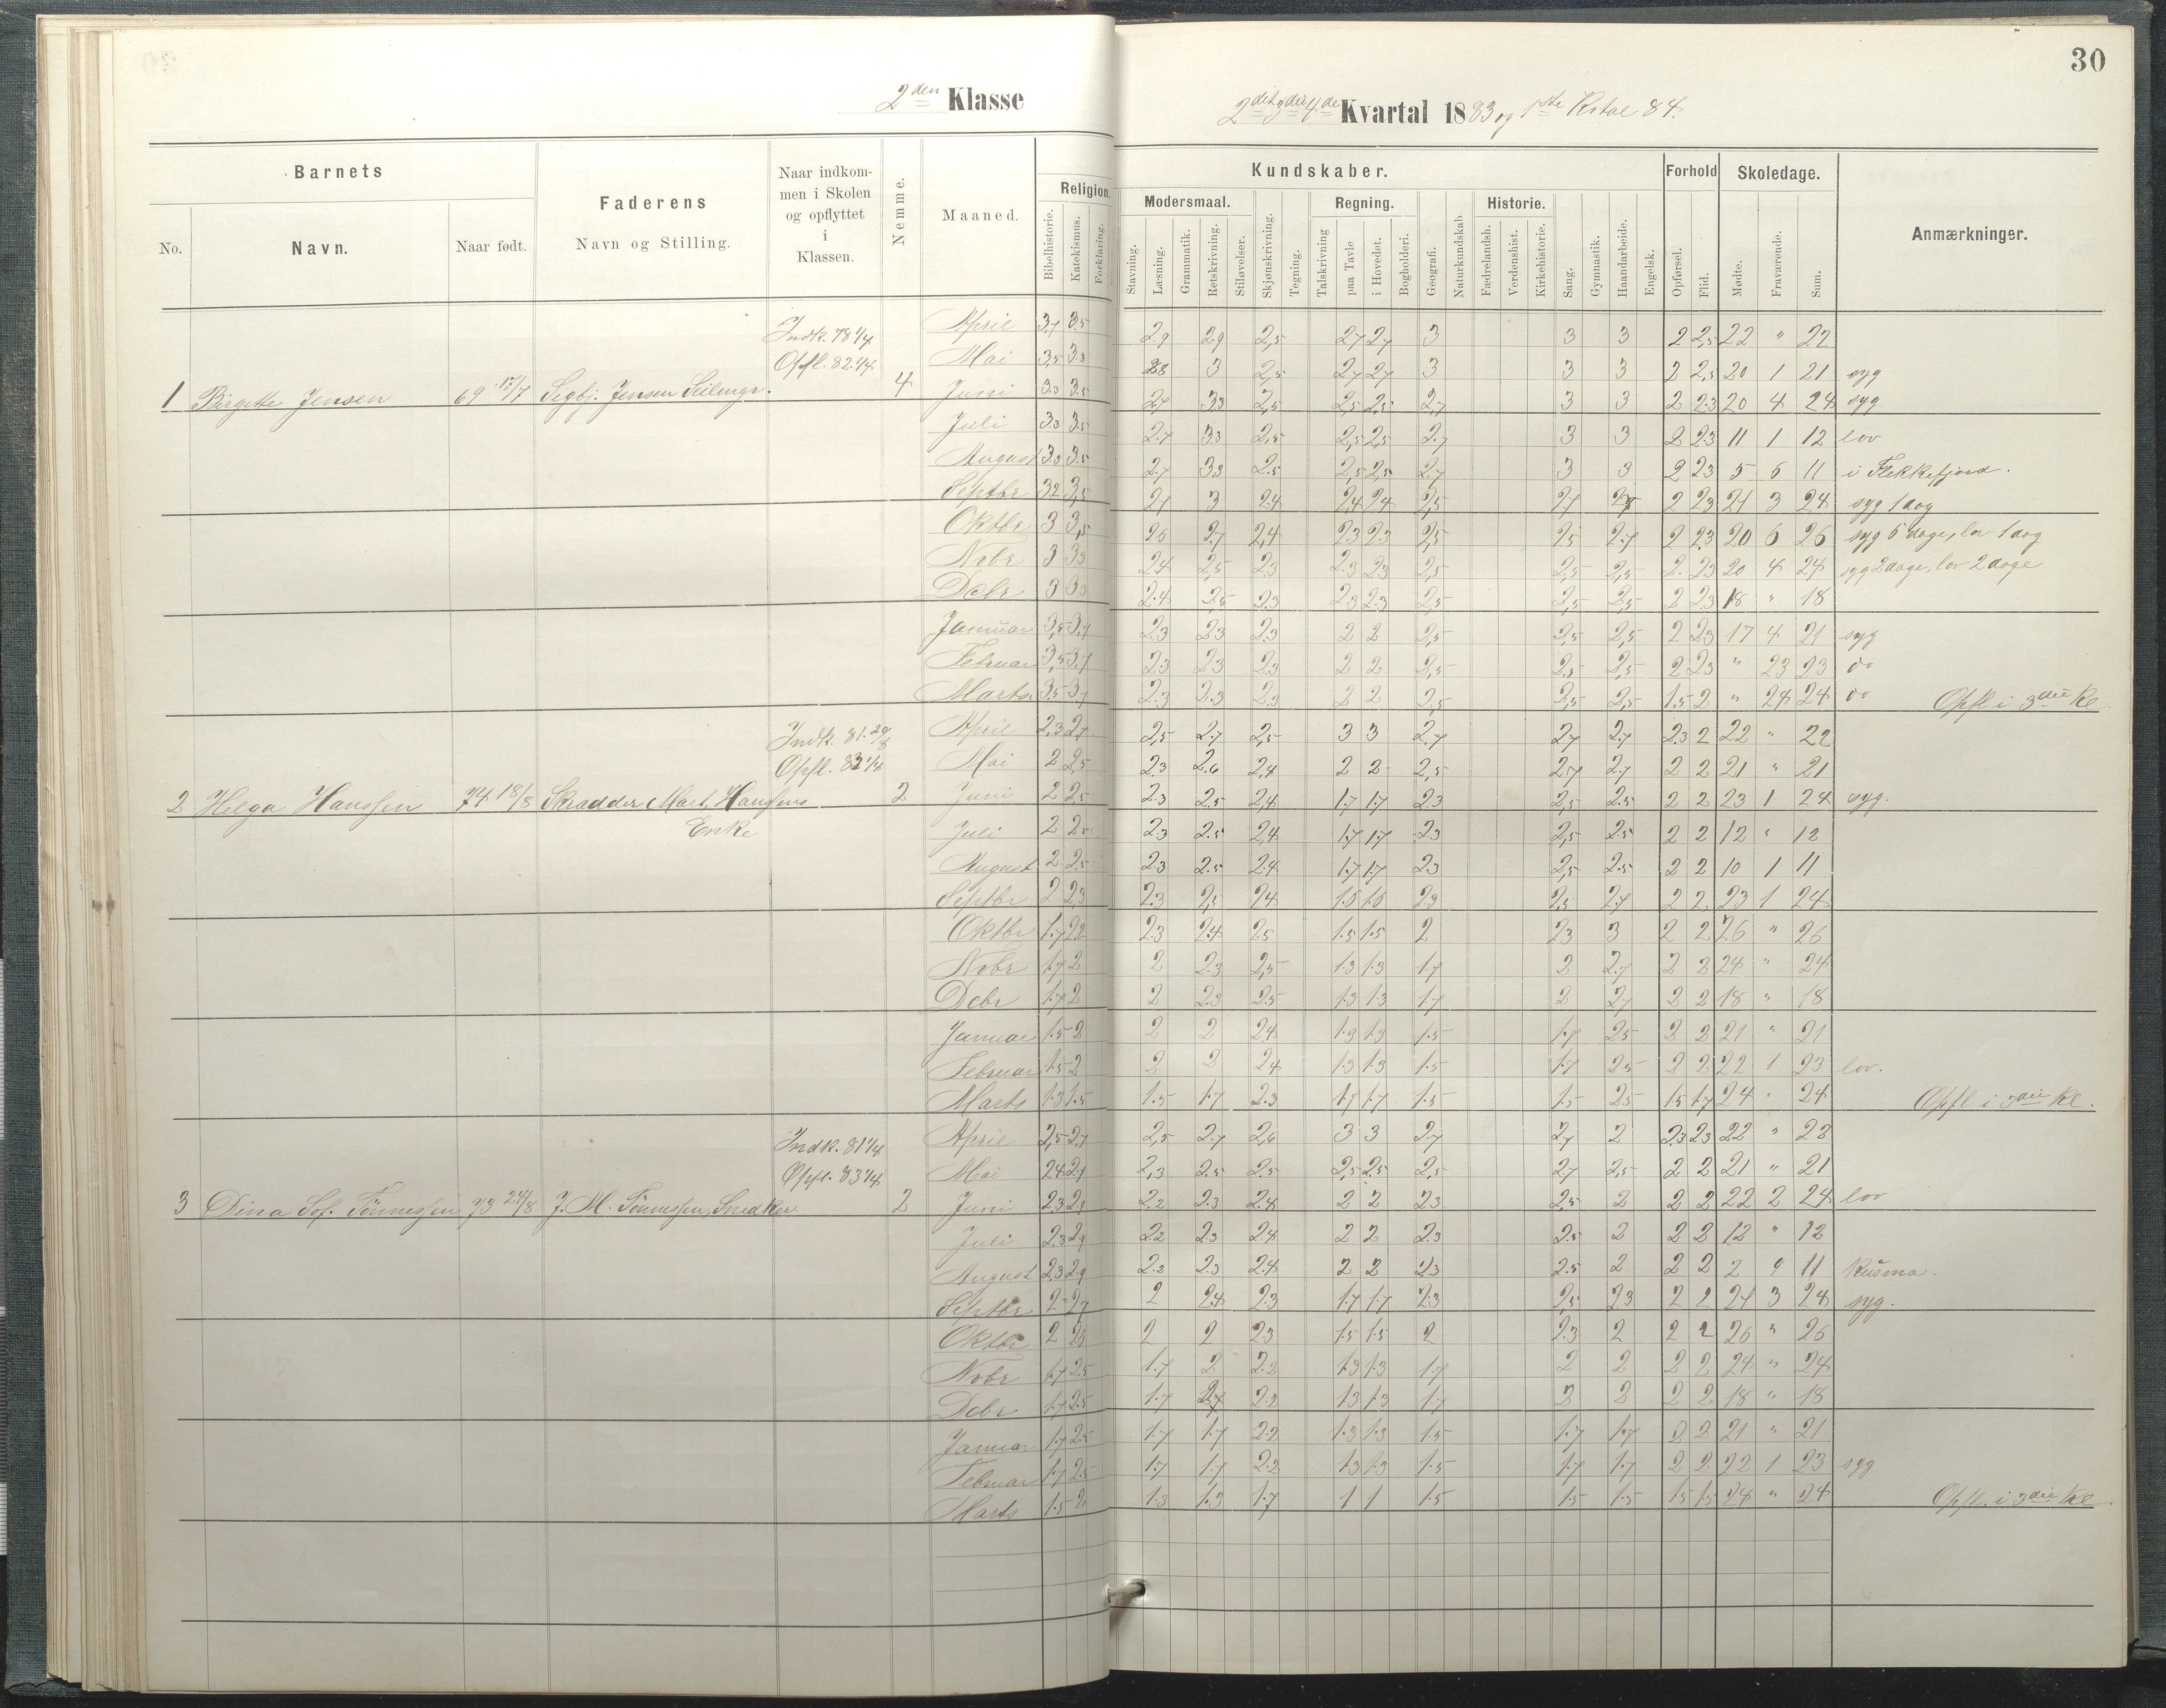 30
2den Klasse
2det 3die 4de Kvartal 1883 og 1ste Kvtal 84.
Barnets
Faderens
Naar indkommen i Skolen og opflyttet i Klassen.
Nemme.
Maaned.
Kundskaber.
Forhold
Skoledage.
Anmærkninger.
No.
Navn.
Naar født.
Navn og Stilling.
Religion.
Modersmaal.
Regning.
Historie.
Bibelhistorie.
Katekismus.
Forklaring.
Stavning.
Læsning.
Grammatik.
Retskrivning.
Stiløvelser.
Skjønskrivning.
Tegning.
Talskrivning
paa Tavle
i Hovedet.
Bogholderi.
Geografi.
Naturkundskab.
Fædrelandsh.
Verdenshist.
Kirkehistorie.
Sang.
Gymnastik.
Haandarbeide.
Engelsk.
Opførsel.
Flid.
Mødte.
Fraværende.
Sum.
Indk. 78 1/4
Opfl. 82 1/4
1 Birgitte Jensen 69 17/7 Sigbj. Jensen Seilmgr. 4
April 3,7 3.5 2.9 2.9 2,5 2.7 2.7 3 3 3 2 2,5 22 " 22
Mai 3,5 3.3 2.8 3 2,5 2.7 2.7 3 3 3 2 2,5 20 1 21 syg
Juni 3.3 3.5 2.7 3.3 2,5 2,5 2,5 2,7 3 3 2 2.3 20 4 24 syg
Juli 3.3 3.5 2.7 3.3 2.5 2,5 2,5 2.7 3 3 2 2.3 11 1 12 lov
August 3.3 3.5 2.7 3.3 2.5 2,5 2,5 2.7 3 3 2 2.3 5 6 11 i Flekkefjord.
Septbr 3.2 3,5 2.7 3 2.4 2.4 2.4 2,5 2.7 2.7 2 2.3 21 3 24 syg 1 dag
Oktbr 3 3,5 2.6 2.7 2,4 2.3 2.3 2,5 2.5 2.7 2 2.3 20 6 26 syg 5 dage, lov 1 dag
Novbr 3 3.3 2.4 2,5 2.3 2.3 2.3 2,5 2,5 2,5 2 2.3 20 4 24 syg 2 dage, lov 2 dage
Decbr 3 3.3 2.4 2,5 2.3 2.3 2.3 2,5 2,5 2,5 2 2.3 18 " 18
Januar 3,5 3.7 2.3 2.3 2.3 2 2 2,5 2,5 2,5 2 2.3 17 4 21 syg
Februar 3,5 3.7 2.3 2.3 2.3 2 2 2,5 2.5 2,5 2 2.3 " 23 23 do
Marts 3.5 3.7 2.3 2.3 2.3 2 2 2,5 2,5 2,5 1.5 2 " 24 24 do Opfl i 3die Kl.
Indk. 81. 29/8
Opfl. 83 1/4
2 Helga Hanssen 74 18/8 Skrædder Mart. Hanssens 2
Enke
April 2,3 2.7 2,5 2.7 2,5 3 3 2.7 2.7 2.7 2.3 2 22 " 22
Mai 2 2,5 2.3 2.6 2,4 2 2 2,5 2.7 2.7 2 2 21 " 21
Juni 2 2,5 2.3 2.5 2,4 1.7 1.7 2.3 2,5 2.5 2 2 23 1 24 syg.
Juli 2 2.5 2.3 2.5 2,4 1.7 1.7 2.3 2,5 2.5 2 2 12 " 12
August 2 2.5 2.3 2.5 2.4 1.7 1.7 2.3 2,5 2.5 2 2 10 1 11
Septbr 2 2.3 2.3 2,5 2.4 1.6 1.6 2.3 2,5 2.7 2 2 23 1 24
Oktbr 1.7 2.2 2.3 2.4 2.5 1.5 1.5 2 2.3 3 2 2 26 " 26
Novbr 1.7 2 2 2.3 2,5 1.3 1.3 1.7 2 2.7 2 2 24 " 24
Decbr 1.7 2 2 2.3 2.5 1.3 1.3 1.7 2 2.7 2 2 18 " 18
Januar 1.5 2 2 2 2.4 1.3 1.3 1.5 1.7 2.5 2 2 21 " 21
Februar 1.5 2 2 2 2.4 1.3 1.3 1.5 1.7 2.5 2 2 22 1 23 lov.
Marts 1.3 1.5 1.5 1.7 2.3 1.7 1.7 1.5 1.5 2.5 1.5 1.7 24 " 24 Opfl i 3die Kl.
Indk. 81 1/4
Opfl. 83 1/4
3 Dina Sof. Tönnessen 73 24/8 J. M. Tönnessen, Snedker 2
April 2,5 2.7 2,5 2.7 2,6 3 3 2.7 2.7 2 2.3 2.3 22 " 22
Mai 2.4 2.7 2,3 2.5 2.5 2,5 2.5 2,5 2.7 2.5 2 2 21 " 21
Juni 2.3 2.9 2.2 2.3 2.4 2 2 2.3 2.5 2 2 2 22 2 24 lov
Juli 2.3 2.9 2.2 2.3 2.4 2 2 2.3 2.5 2 2 2 12 " 12
August 2.3 2.9 2.2 2.3 2.4 2 2 2.3 2.5 2 2 2 2 9 11
Septbr 2 2.7 2 2.4 2.3 1.7 1.7 2.3 2,5 2.3 2 2 21 3 24 syg.
Oktbr 2 2.6 2 2 2.3 1.5 1.5 2 2.3 2 2 2 26 " 26
Novbr 1.7 2.5 1.7 2 2.2 1.3 1.3 1.7 2 2 2 2 24 " 24
Decbr 1.7 2.5 1.7 2.2 1.3 1.3 1.7 2 2 2 2 18 " 18
Januar 1.7 2.5 1.7 1.7 2.2 1.3 1.3 1.5 1.7 1.7 2 2 21 " 21
Februar 1.7 2.5 1.7 1.7 2.2 1.3 1.3 1.5 1.7 1.7 2 2 22 1 23 syg
Marts 1.5 2 1.3 1.3 1.7 1 1 1.5 1.5 1.5 1.5 1.5 24 " 24 Opfl. i 3die Kl.